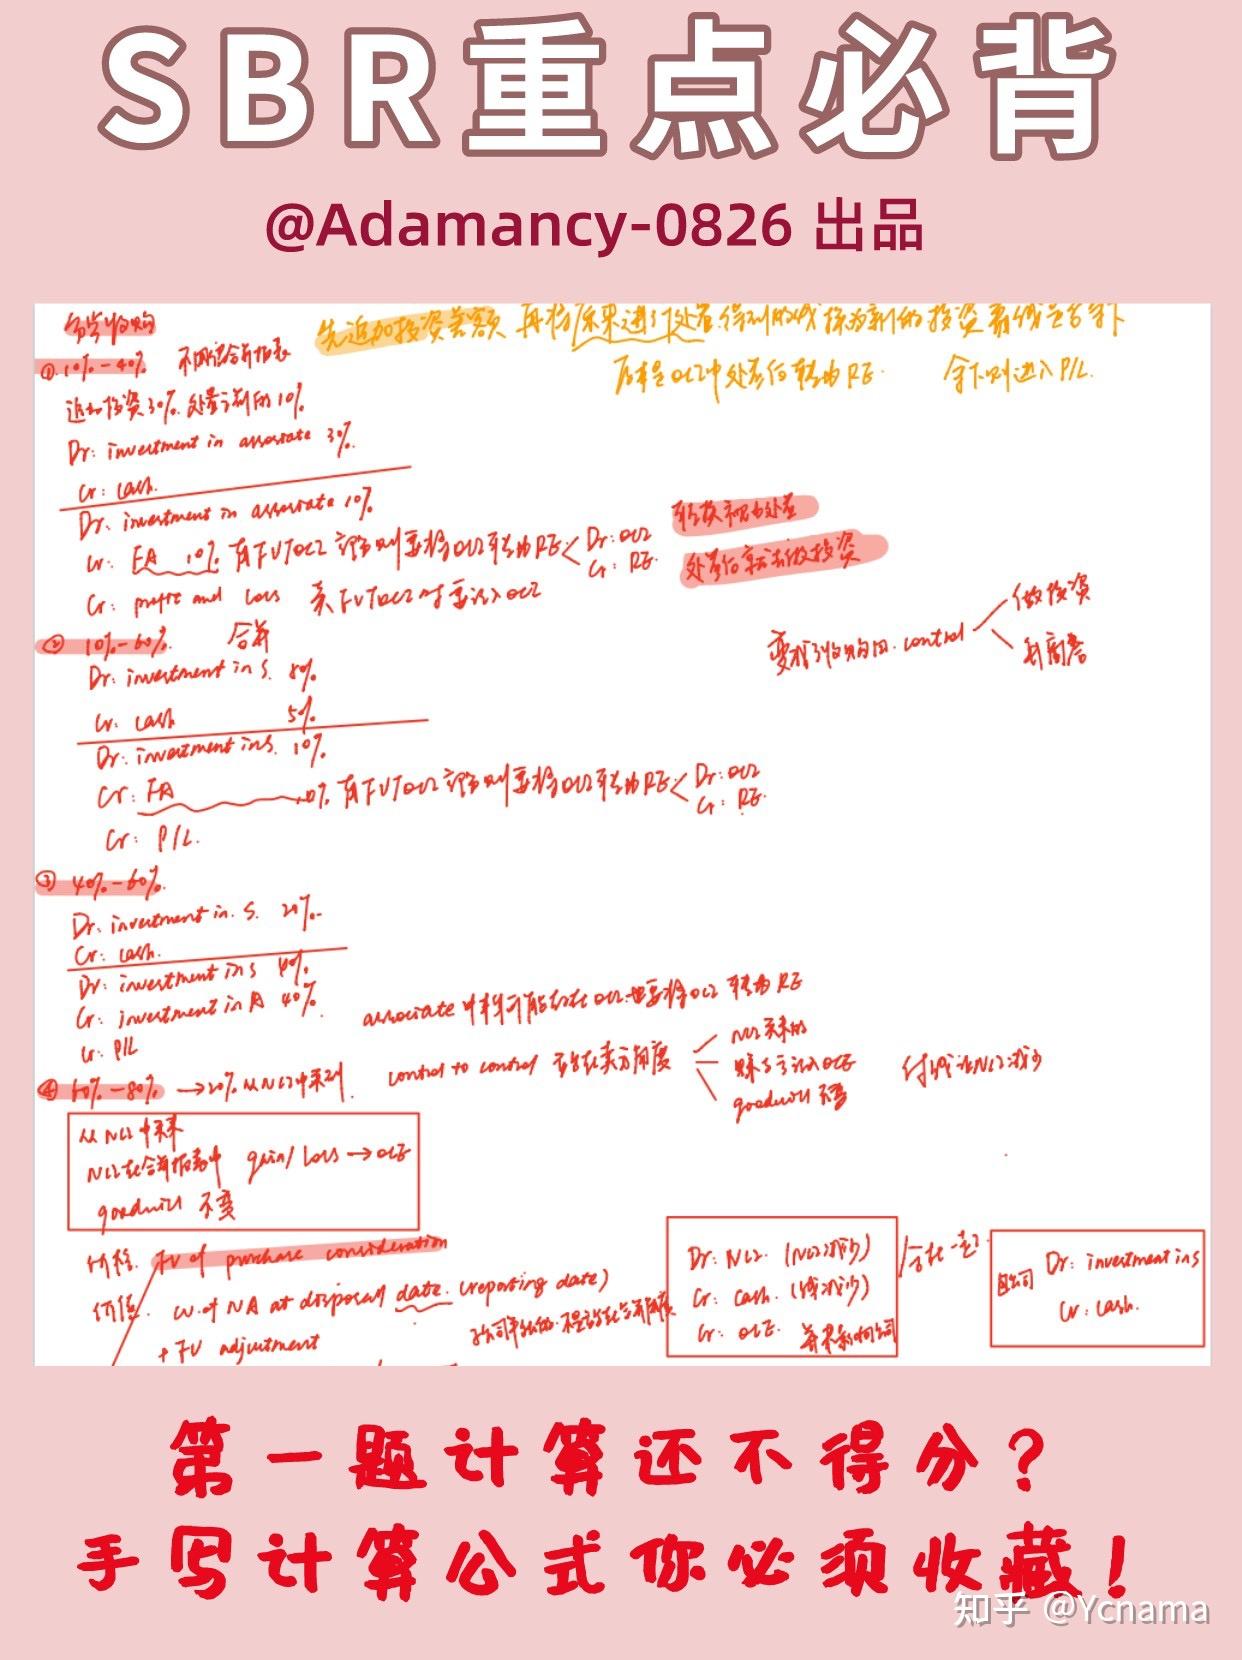 SBR重点必背
@Adamancy-0826 出品
多步收购
先追加投资差额 再将原来进行处置得到的钱作为新的投资看钱是否剩下
① 10%-40% 不用做合并报表
原本是OCI中处置后转为RE. 余下则进入P/L.
追加投资30%. 处置之前的10%
Dr: investment in associate 30%.
Cr: cash.
Dr: investment in associate 10%
Cr: FA 10% 有FVTOCI 部分则要将OCI转为RE
Dr: OCI
Cr: RE.
处置后去做投资
Cr: profit and loss 卖FVTOCI时要记入OCI
做投资
control
② 10%-60%. 合并
Dr: investment in S. %
Cr: cash 50%.
Dr: investment in S. 10%.
Cr: FA 10% 有FVTOCI 部分则要将OCI转为RE
Dr: OCI
Cr: RE.
Cr: P/L.
③ 40%-60%.
Dr: investment in. S. 20%.
Cr: cash.
Dr: investment in S 40%.
Cr: investment in A 40%.
associate 中有可能存在OCI也要将OCI转为RE
Cr: P/L
④ 60%-80% → 20%从NCI中来到. control to control 站在卖方角度
NCI买来的
赚多亏记入OCE
goodwill 不变
付钱让NCI减少
从NCI中来
NCI在合并报表中 gain/loss → OCE
goodwill 不变
价格. FV of purchase consideration
价值. CV. of NA at disposal date. (reporting date)
+ FV adjustment
Dr: NCI. (NCI减少)
Cr: cash. (钱减少)
Cr: OCE.
合在一起
母公司 Dr: investment in S
Cr: cash.
第一题计算还不得分？
手写计算公式你必须收藏！
知乎 @Ycnama